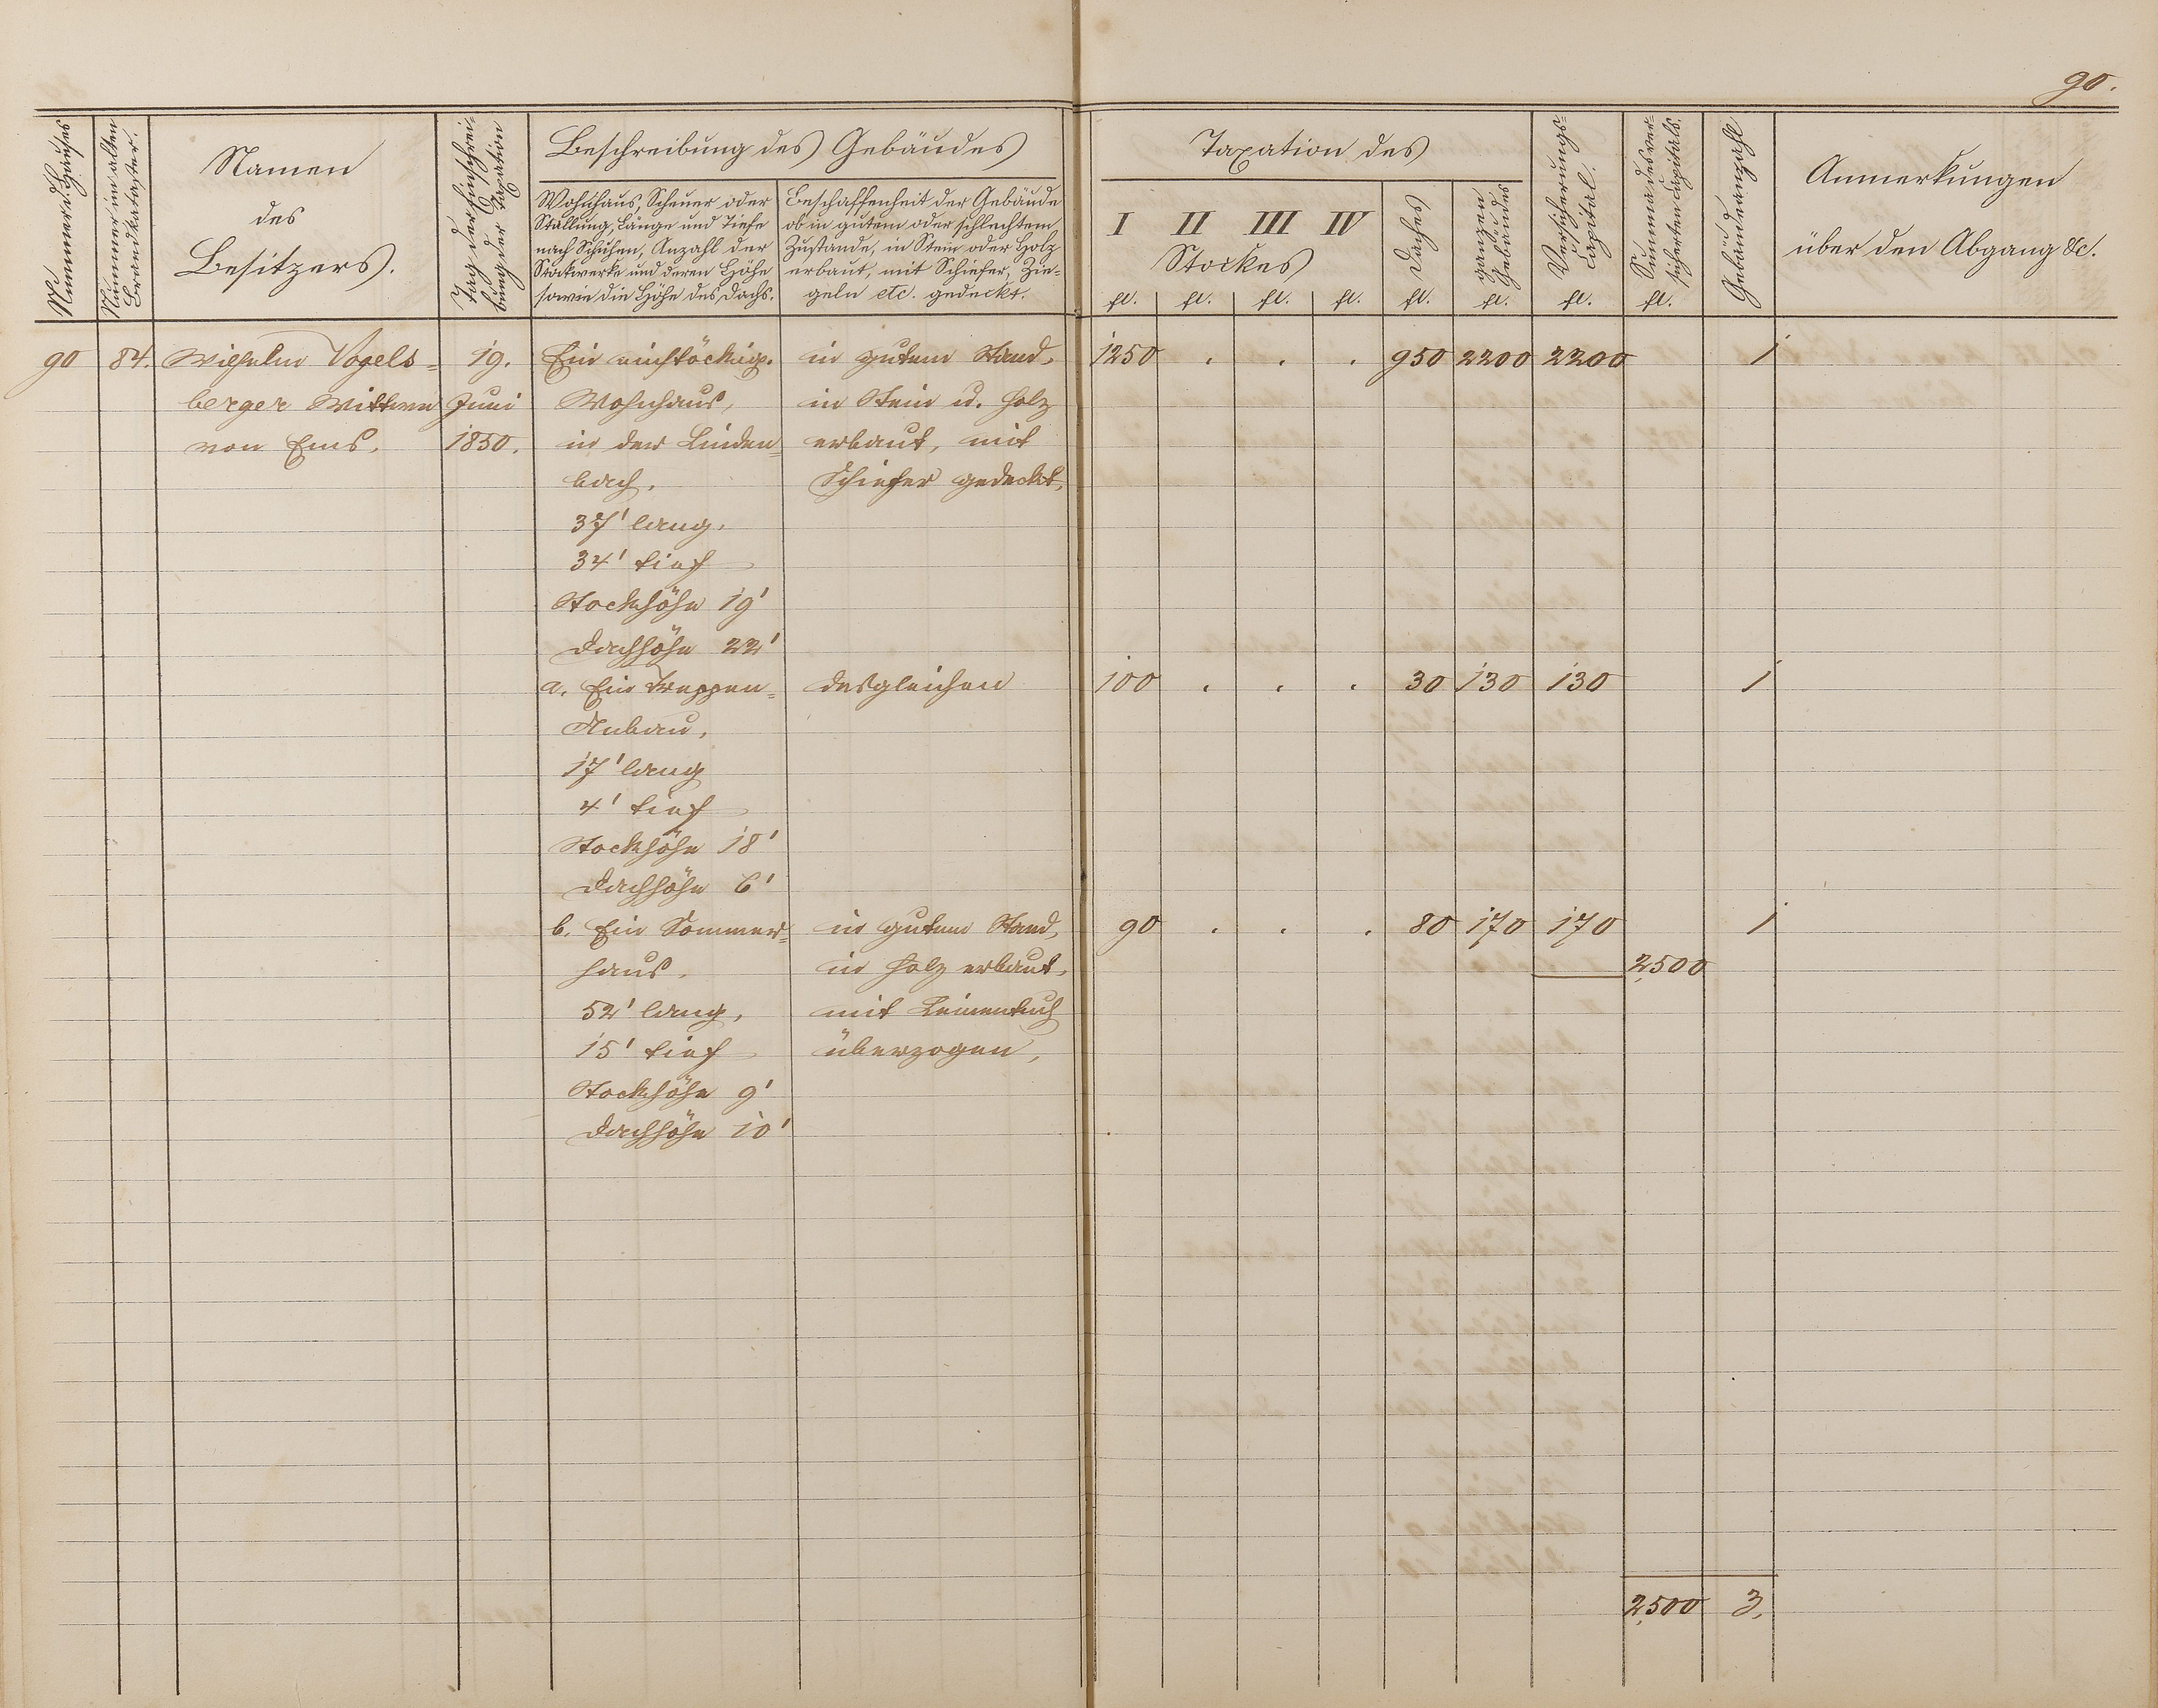 90.
Nummer d. Hauses
Nummer im alten
Brandkataster.
Namen
des
Besitzers.
Tag der Einschrei-
bung der Taxation
Beschreibung des Gebäudes
Wohnhaus, Scheuer oder
Stallung, Länge und Tiefe
nach Schuhen, Anzahl der
Stockwerke und deren Höhe
sowie die Höhe des Dachs.
Beschaffenheit der Gebäude
ob in gutem oder schlechtem
Zustande, in Stein oder Holz
erbaut, mit Schiefer, Zie-
geln etc. gedeckt.
Taxation des
I II III IV
Stockes
Daches
ganzen
Gebäudes
Versicherungs-
Capital.
Summa des ver-
sicherten Capitals.
Gebäudeanzahl
Anmerkungen
über den Abgang &c.
fl. fl. fl. fl. fl. fl. fl. fl.
90 84. Wilhelm Vogels= 19. Ein einstöckig. in gutem Stand, 1250 . . . 950 2200 2200 1
berger Wittwe Juni Wohnhaus, in Stein u. Holz
von Ems. 1850. in der Linden= erbaut, mit
bach. Schiefer gedeckt,
37' lang.
34' tief
Stockhöhe 19'
Dachhöhe 22'
a. Ein Treppen= desgleichen 100 . . . 30 130 130 1
Anbau,
17' lang
4' tief
Stockhöhe 18'
Dachhöhe 6'
b. Ein Sommer= in gutem Stand, 90 . . . 80 170 170 1
haus, in Holz erbaut, 2,500
52' lang, mit Leinentuch
15' tief überzogen,
Stockhöhe 9'
Dachhöhe 10'
2,500 3.